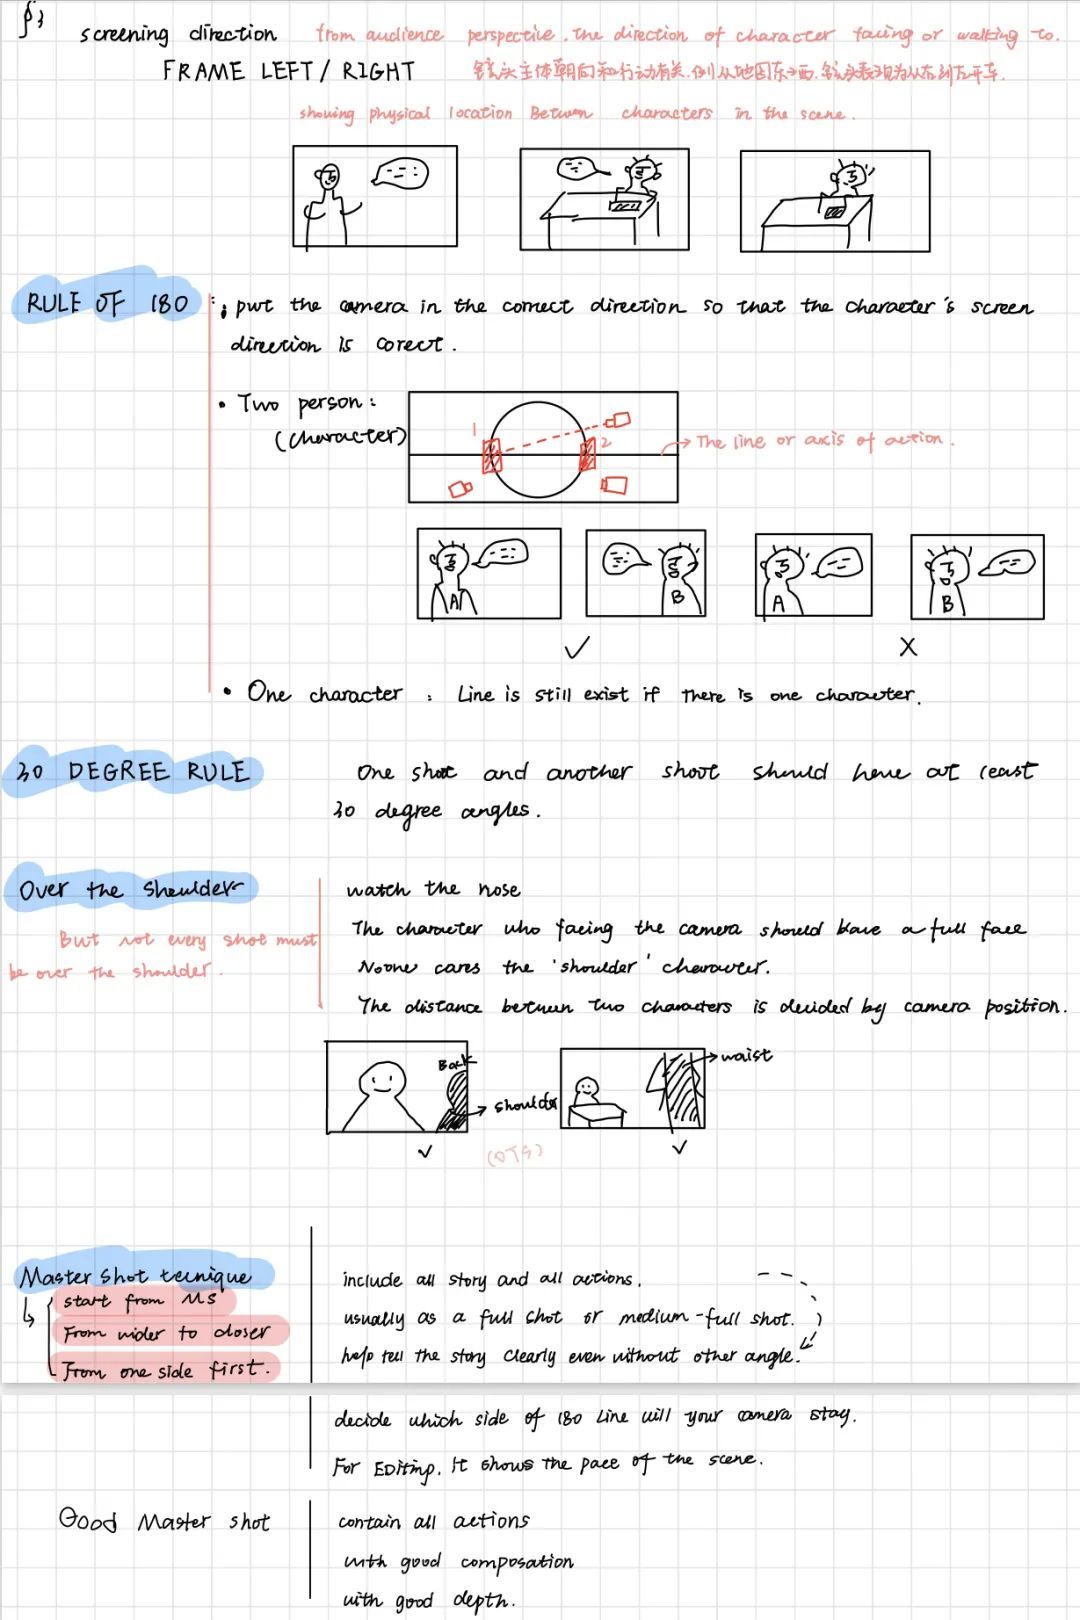 screening direction from audience perspective. the direction of character facing or walking to.
FRAME LEFT / RIGHT 镜头主体朝向和行动有关.例从地图东→西.镜头表现为从右到左开车.
showing physical location Between characters in the scene.
RULE OF 180 : put the camera in the correct direction so that the character's screen
direction is corect.
• Two person :
(character)
1
2
→ The line or axis of action.
A
B
A
B
✓
X
• One character : Line is still exist if there is one character.
30 DEGREE RULE One shoot and another shoot should have at least
30 degree angles.
Over the shoulder watch the nose
But not every shot must
be over the shoulder.
The character who facing the camera should have a full face
Noone cares the 'shoulder' character.
The distance between two characters is decided by camera position.
Back
→ shoulder
→ waist
✓ (OTS) ✓
Master shot tecnique include all story and all actions.
start from MS
usually as a full shot or medium-full shot.
From wider to closer
help tell the story clearly even without other angle.
From one side first.
decide which side of 180 Line will your camera stay.
For Editing. It shows the pace of the scene.
Good Master shot contain all actions
with good composation
with good depth.